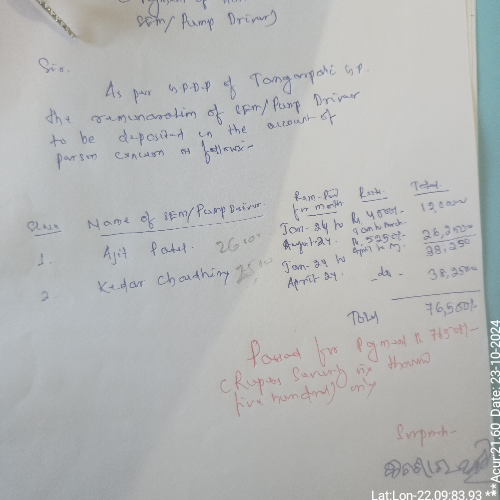 SEM/Pump Driver)
Sir.
As per G.P.D.P of Tangarpali G.P.
the remuneration of SEM/Pump Driver
to be deposited in the account of
person concern as follows:-
Name of SEM/Pump Driver. Rem. Paid for month Rate Total
1. Ajit Patel. 26000 Jan-24 to August-24. 12,000
26,250
38,250
2. Kedar Choudhury Jan-24 to April 24. -do- 38,250
Total 76,500/-
Passed for Pyment Rs 76500/-
(Rupees Seventy six thousand
five hundred) only
Lat:Lon-22.09:83.93 **Acur:21.60 Date: 23-10-2024